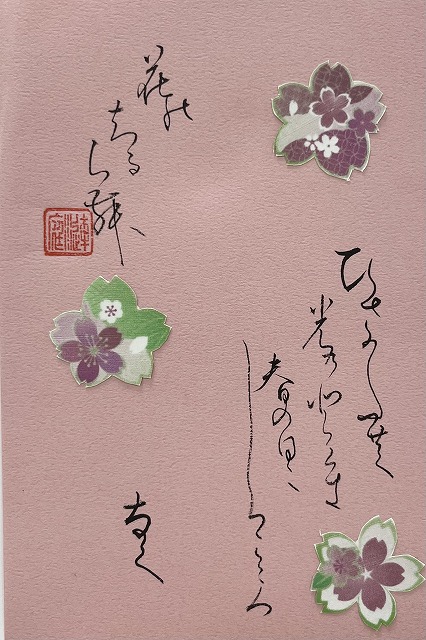 ひさかたの
光のとけき
春の日に
しつこゝろ
なく
花の
ちる
らむ